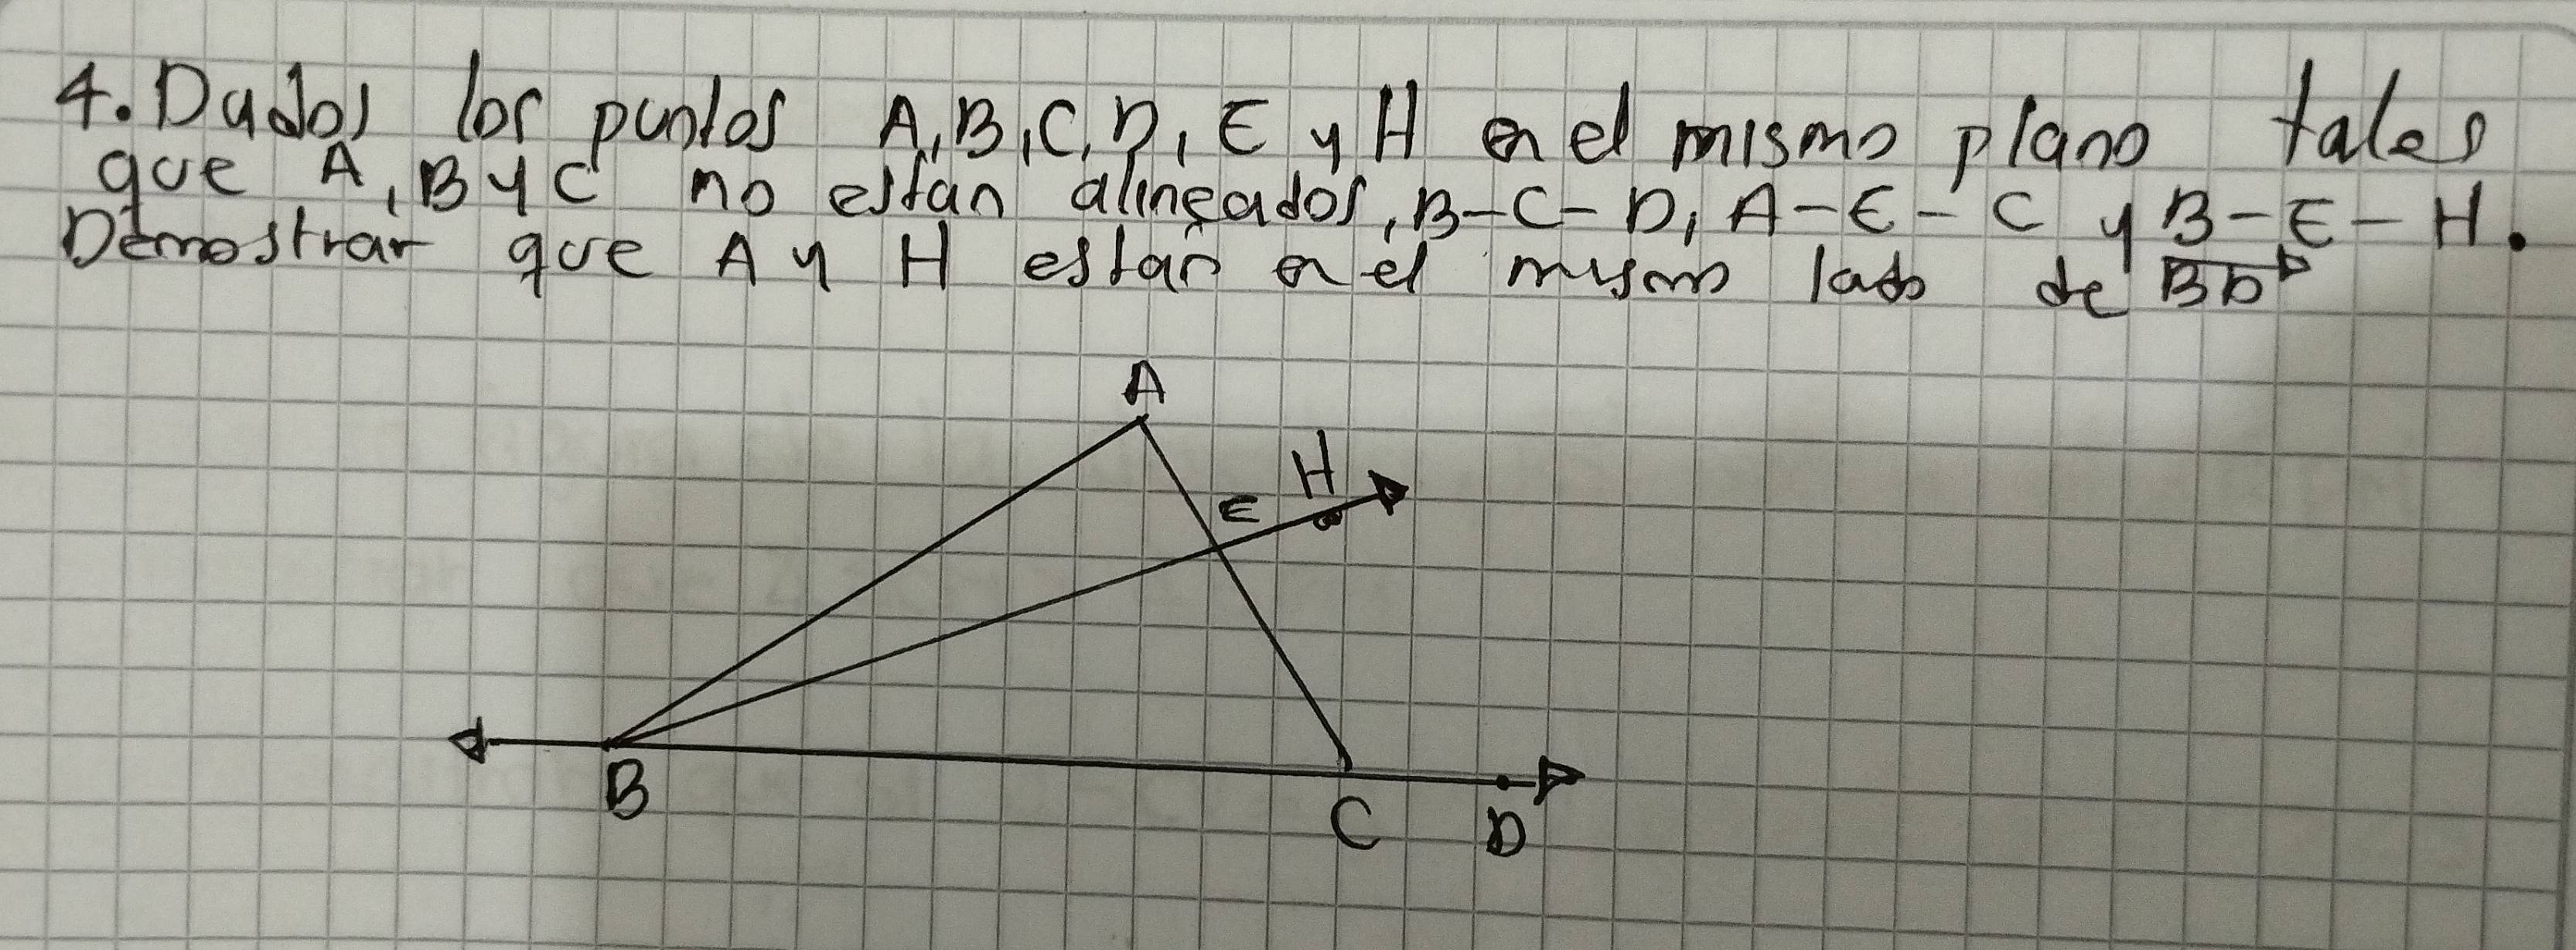 4. Dados los puntos A, B, C, D, E y H en el mismo plano tales
que A, B y C no estan alineados, B-C-D, A-E-C y B-E-H.
Demostrar que A y H estan en el mismo lado de BD
A
H
E
B
C
D